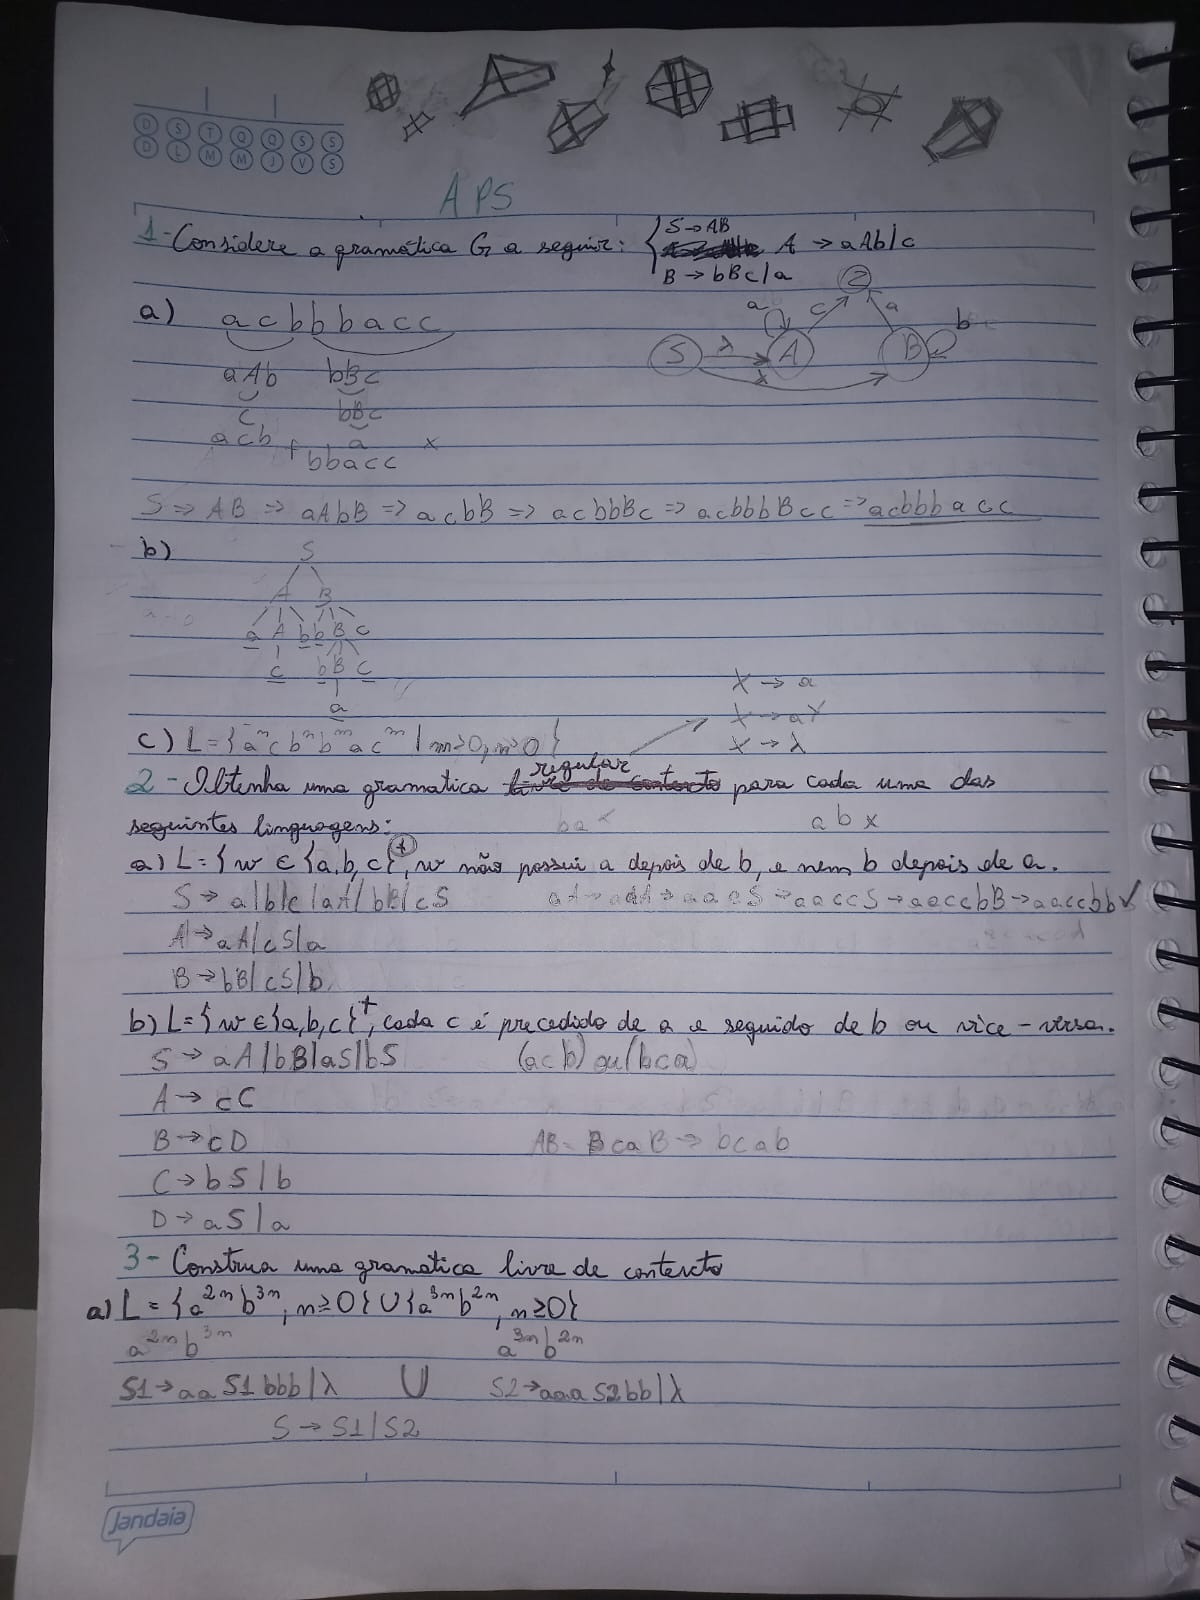 D S T Q Q S S
D L M M J V S
APS
1- Considere a gramática G a seguir: { S → AB
A → aAb|c
B → bBc|a
a) acbbbacc
aAb bBc
c bBc
acb + a x
bbacc
S λ A a c 2 a B b
λ
S ⇒ AB ⇒ aAbB ⇒ acbB ⇒ acbbBc ⇒ acbbbBcc ⇒ acbbbacc
b) S
A B
a A b b B c
c b B c
a
X → a
X → aY
X → λ
c) L = {aⁿcbⁿbᵐacᵐ | m≥0, n≥0}
2 - Obtenha uma gramatica regular para cada uma das
seguintes linguagens: ba abx
a) L = {w ∈ {a,b,c}⁺, w não possui a depois de b, e nem b depois de a.
S → a|b|c|aA|bB|cS aA → aaA → aacS → aaccS → aaccbB → aaccbb ✓
A → aA|cS|a
B → bB|cS|b
b) L = {w ∈ {a,b,c}⁺, cada c é precedido de a e seguido de b ou vice-versa.
S → aA|bB|aS|bS (acb) ou (bca)
A → cC
B → cD AB = BcaB → bcab
C → bS|b
D → aS|a
3 - Construa uma gramatica livre de contexto
a) L = {a²ⁿb³ⁿ, n≥0} ∪ {a³ⁿb²ⁿ, n≥0}
a²ⁿb³ⁿ a³ⁿb²ⁿ
S1 → aa S1 bbb|λ ∪ S2 → aaa S2 bb|λ
S → S1|S2
Jandaia